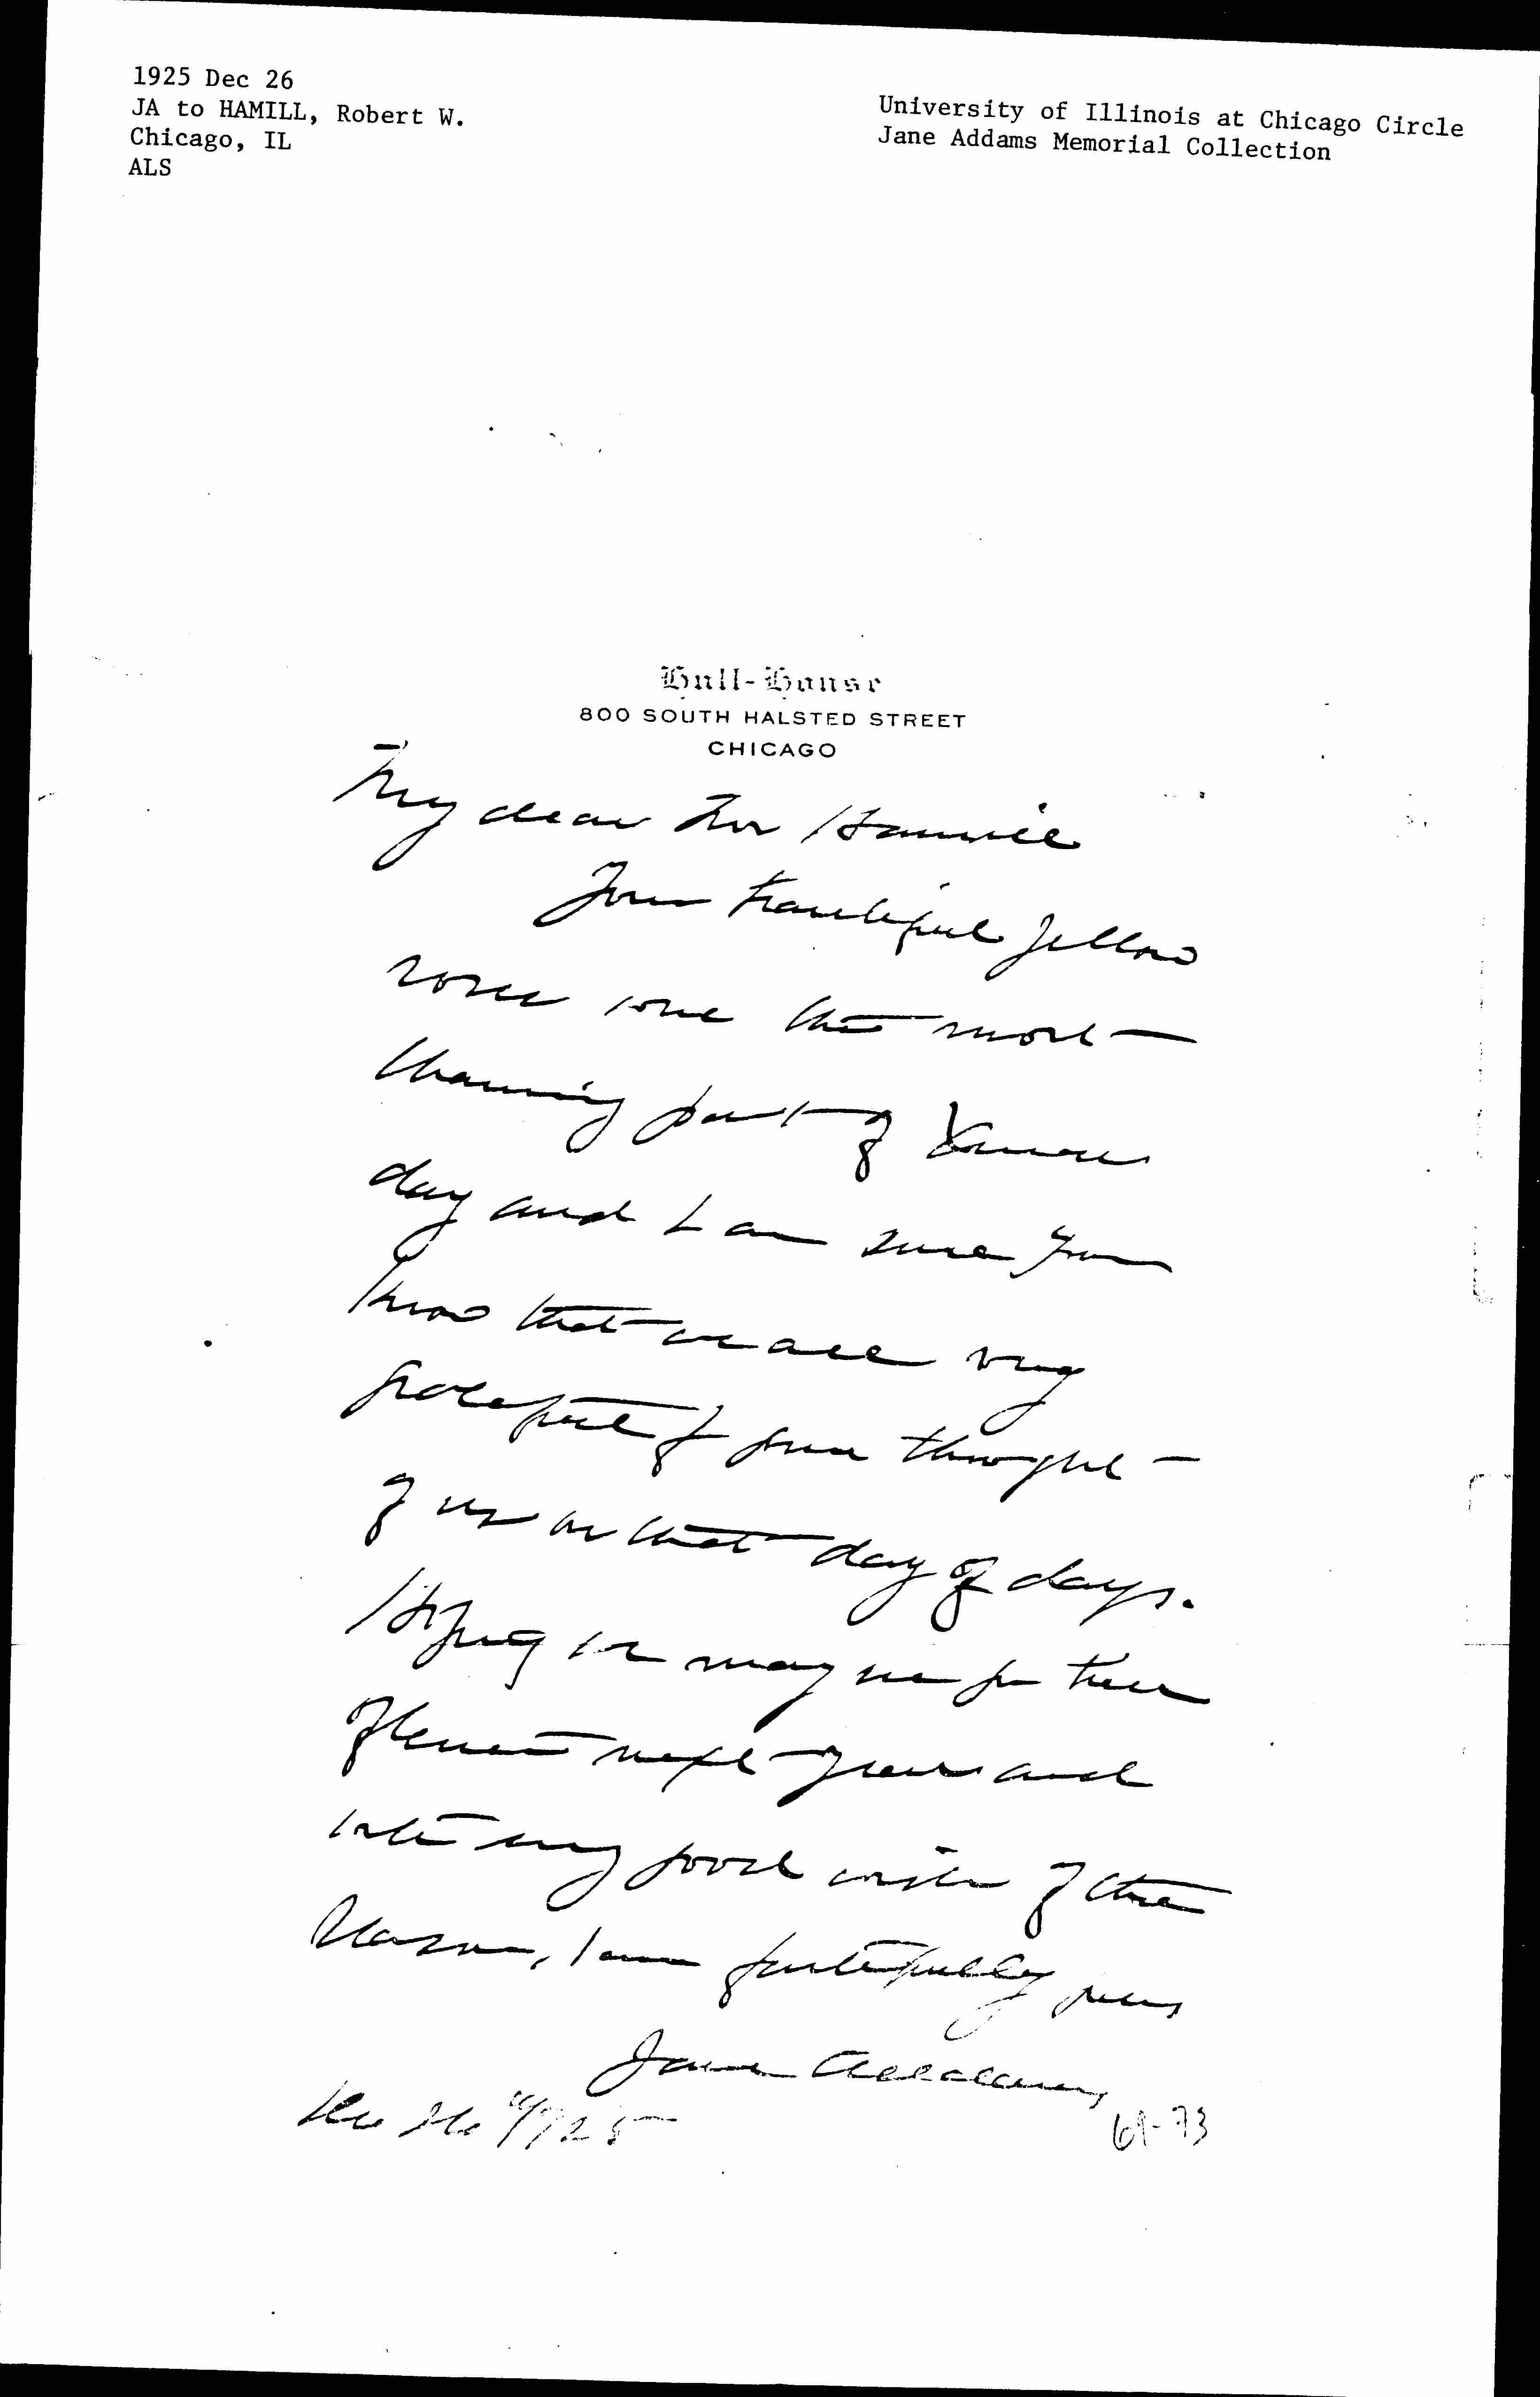 1925 Dec 26
JA to HAMILL, Robert W.
Chicago, IL
ALS
University of Illinois at Chicago Circle
Jane Addams Memorial Collection
Hull-House
800 SOUTH HALSTED STREET
CHICAGO
My dear Mr Hamill
Your beautiful yellow
roses were the most
charming part of Xmas
day and I am sure you
know that we are very
grateful for your thought
of us on that day of days.
Hoping we may see you
next year and
with my good wishes of the
season, I am faithfully yours
Jane Addams
Dec 26" 1925
69-73